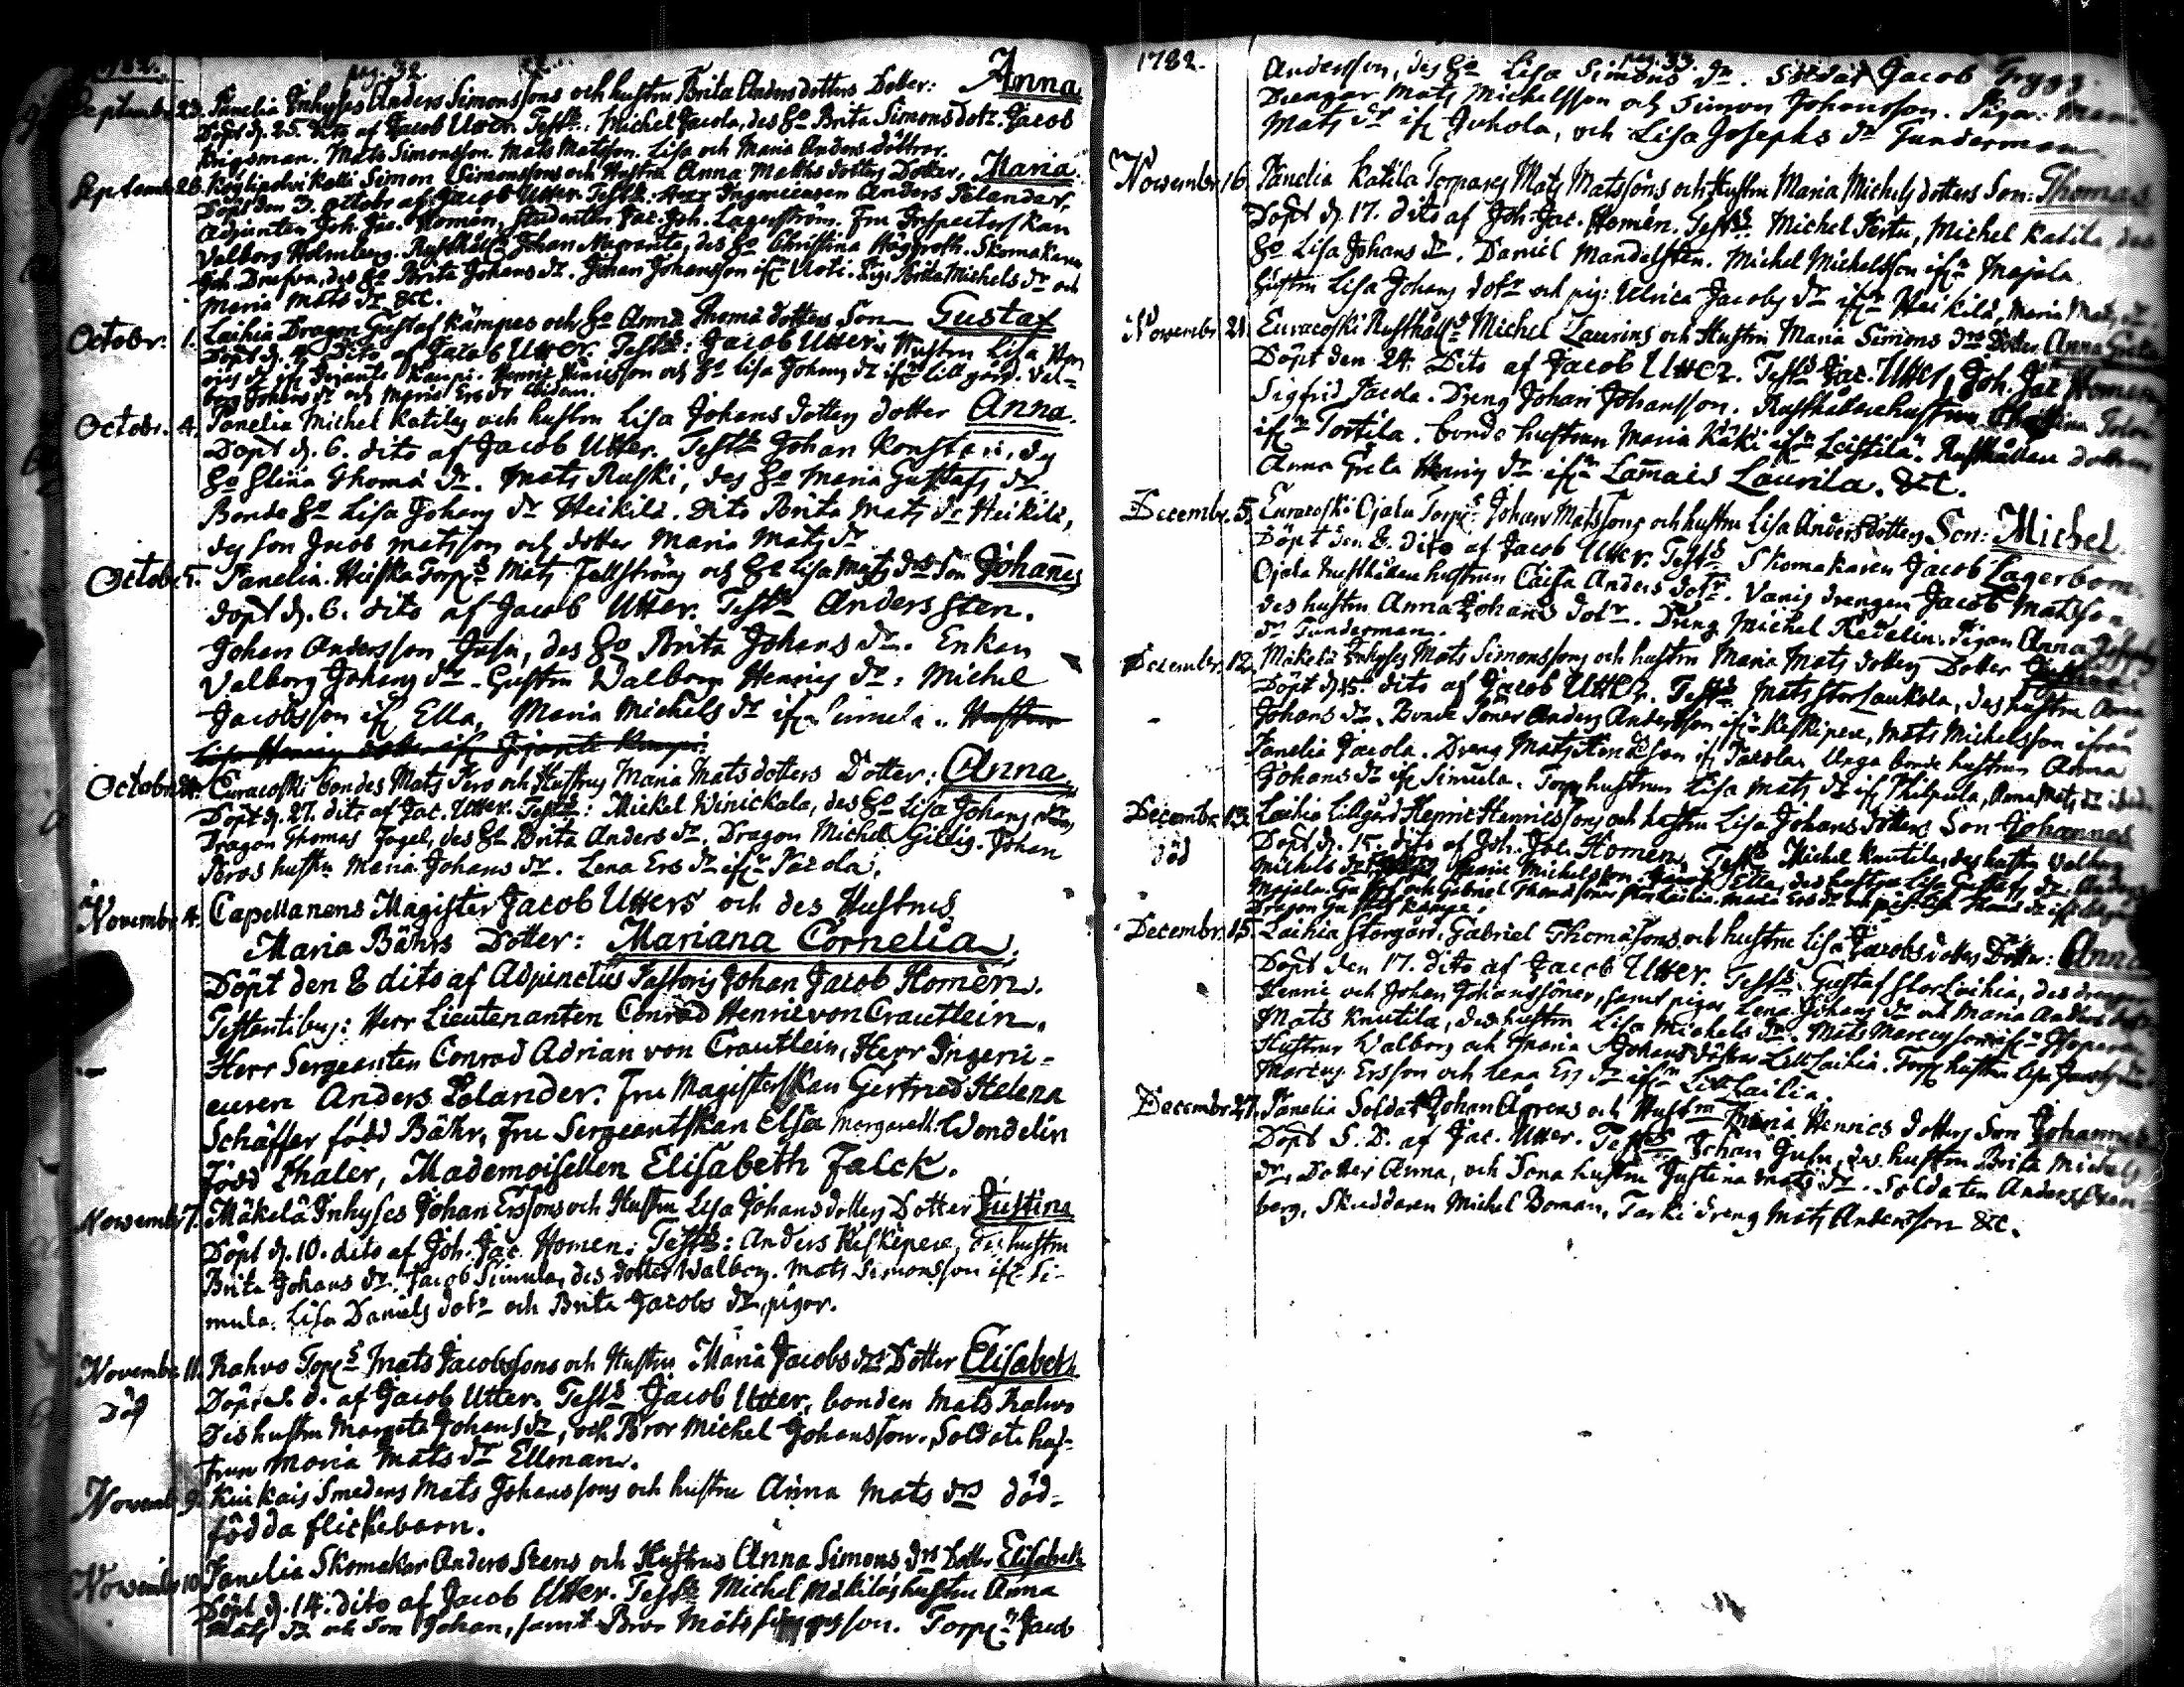 pag. 32.
Septembr. 23. Panelia Inhyses Anders Simonssons och hustru Brita Andersdotters Dotter: Anna
Döpt d. 25. dito af Jacob Utter. Test: Michel Jacola, des Ho Brita Simons dotr. Jacob
Krigsman. Mats Simonsson. Mats Matsson. Lisa och Maria Anders döttrar.
Septemb. 28. Simon Simonssons och Hustru Anna Matths dotters Dotter, Maria.
Döpt den 3. octobr af Jacob Utter. Testb: Herr Ingenieuren Anders Polander,
Adjuncten Joh. Jac. Homen, Studenten Jac. Joh. Lagerström. Fru Inspectorskan
Valborg Holmberg. Johan des Ho Christina Häggroth. Skomakaren
Joh. des Ho Brita Johans dr. Johan Johansson ifr Uoti. Pig. Brita Michels dr och
Maria Mats dr &c.
Octobr. 1. Laihia Dragon Gustaf Kämpes och Ho Anna Thomæ dotters Son Gustaf
Döpt d. 4. Dito af Jacob Utter. Testb: Jacob Utter, Hustru Lisa Hen
rics dr ifr Henric Henricsson och Ho Lisa Johans dr ifr Lillgård. Val-
borg Johans dr och Maria Ers dr ibidem.
Octobr. 4. Panelia Michel Katilas och hustru Lisa Johans dotters dotter Anna.
Döpt d. 6. dito af Jacob Utter. Testb Johan Konsteri, des
Ho Elina Thomæ dr. Mats Ruski, des Ho Maria Gustafs dr.
Bonde Ho Lisa Johans dr Heikilä. Dito Brita Mats dr Heikilä,
des son Jacob Matsson och dotter Maria Mats dr
Octobr. 5. Panelia. Heiska Torps Mats Fellströms och Ho Lisa Mats drs Son Johanes
döpt d. 6. dito af Jacob Utter. Testb Anders Sten.
Johan Andersson Jusu, des Ho Brita Johans dr. Enkan
Valborg Johans dr. Hustru Walborg Henrics dr: Michel
Jacobsson ifr Ella, Maria Michels dr ifr Simula. Hustru
Lisa Henrics dotter ifr
Octobr. 24. Euracoski bondes Mats Pero och Hustrus Maria Mats dotters Dotter: Anna
Döpt d. 27. dito af Jac. Utter. Testb: Mickel Winickala, des Ho Lisa Johans dr
Dragon Thomas Fogel, des Ho Brita Anders dr. Dragon Michel Gillig. Johan
Peros hustru Maria Johans dr. Lena Ers dr ifr Pacola.
Novembr. 4. Capellanens Magister Jacob Utters och des Hustrus
Maria Bährs Dotter: Mariana Cornelia
Döpt den 8 dito af Adjunctus Pastoris Johan Jacob Homèn.
Testentibus: Herr Lieutenanten Conrad Henric von Crautlein,
Herr Sergeanten Conrad Adrian von Crautlein, Herr Ingeni-
euren Anders Polander. Fru Magisterskan Gertrud Helena
Schäffer född Bähr, Fru Sergeantskan Elsa Margareth. Wendelin
född Thaler, Mademoisellen Elisabeth Falck.
Novembr 7. Mäkelä Inhyses Johan Erssons och Hustru Lisa Johans dotters Dotter Justina
Döpt d. 10. dito af Joh. Jac. Homen. Testb: Anders Keskipere, des hustru
Brita Johans dr. Jacob Simula, des dotter Walborg. Mats Simonsson ifr Si-
mula. Lisa Daniels dotr och Brita Jacobs dr, pigor.
Novembr. 11. Kahvo Torps Mats Jacobssons och Hustru Maria Jacobs drs Dotter Elisabeth
Död Döpt S. D. af Jacob Utter. Testb Jacob Utter, bonden Mats Kahvo
Des hustru Margeta Johans dr, och Bror Michel Johansson. Soldate hus-
trun Maria Mats dr Ellman.
Novemb. 9. Kiukais Smedens Mats Johanssons och hustru Anna Mats drs död-
födda flickebarn.
Novembr 10. Panelia Skomakar Anders Stens och Hustrus Anna Simons drs Dotter Elisabeth
Döpt d. 14. dito af Jacob Utter. Testb Michel Mäkiläs hustru Anna
Mats dr och Son Johan, samt Bror Mats Simonsson. Torpr Jacob
1782. pag. 33.
Andersson, des Ho Lisa Simons dr. Soldat Jacob Trygg.
Drengar Mats Michelsson och Simon Johansson. Pigor: Maria
Mats dr ifr Juhola, och Lisa Josephs dr Tunderman
Novembr. 16. Panelia Katila Torpares Mats Matssons och Hustru Maria Michels dotters Son: Thomas
Döpt d. 17. dito af Joh. Jac. Homén. Testb. Michel Pertu, Michel Katila, des
Ho Lisa Johans dr. Daniel Mandelsten. Michel Michelsson ifrn Majala
Hustru Lisa Johans dotr och pig: Ulrica Jacobs dr ifrn Heikilä, Maria Mats dr.
Novembr 21. Euracoski Rusthålls Michel Laurins och Hustru Maria Simons drs Dotter Anna Greta
Döpt den 24. Dito af Jacob Utter. Testb Jac. Utter, Joh. Jac Homen
Sigfrid Pacola. Dreng Johan Johansson. Rusthållarehustrun Christina
ifrn Tortila. bonde hustrun Maria Käki ifrn Leistilä. Rusthållare dottren
Anna Greta Henrics dr ifrn Lamais Laurila. &c.
Decembr. 5. Euracoski Ojala Torps Johan Matssons och hustru Lisa Andersdotters Son: Michel
Döpt den 8. dito af Jacob Utter. Testb Skomakaren Jacob Lagerbom.
Ojala Rusthållare hustrun Caisa Anders dotr. Vanis drengen Jacob Matsson
des hustru Anna Johans dotr. Dreng Michel Redelin. Pigan Anna Josephs
dr Tunderman.
Decembr. 12. Mäkelä Inhyses Mats Simonssons och hustru Maria Mats dotters Dotter
Döpt d. 15. dito af Jacob Utter. Testb Mats Storlaukola, des hustru Anna
Johans dr. Bonde Söner Anders Andersson ifrn Keskipere, Mats Michelsson ifrån
Panelia Jacola. Dreng Mats Hendsson ifr Pacola. Unga bonde hustrun Anna
Johans dr ifr Simula. Torp hustrun Lisa Mats dr ifr Philpula, Anna Mats dr ibid.
Decembr. 13. Laihia Lillgård Henric Henricssons och hustru Lisa Johans dotters Son Johannes
död Döpt d. 15. dito af Joh. Jac. Homen. Testb Michel Knutila, des hustru Valborg
Michels dr Henric Michelsson. Ella, des hustru Lisa Gustafs dr. Anders
Majala. Gustaf och Gabriel Thomæ söner Storlaihia. Maria Ers dr och pig: Lisa Thomæ dr ifr
Dragon Gustaf Kämpe.
Decembr. 15. Laihia Storgård, Gabriel Thomæsons och hustru Lisa Jacobs dotters Dotter: Anna
Döpt den 17. dito af Jacob Utter. Testb. Gustaf Stor Laihia, des drengar
Henric och Johan Johanssöner, samt pigor Lena Johans dr och Maria Anders dotr
Mats Knutila, des hustru Lisa Michels dr. Mats Marcusson ifrn
Hustrur Valborg och Maria Johans döttrar Lill Laihia. Torp hustru Lisa Jacobs dr
Marcus Ersson och Lena Ers dr ifrn Lill Laihia.
Decembr 27. Panelia Soldat Johan Ågrens och Hustru Maria Henrics dotters Son Johannes
Döpt S. D. af Jac. Utter. Testb Johan Jusu, des hustru Brita Michels
dr, Dotter Anna, och Sona hustru Justina Mats dr. Soldaten Anders
berg, Skuddaren Michel Boman, Tarki dreng Mats Andersson &c.